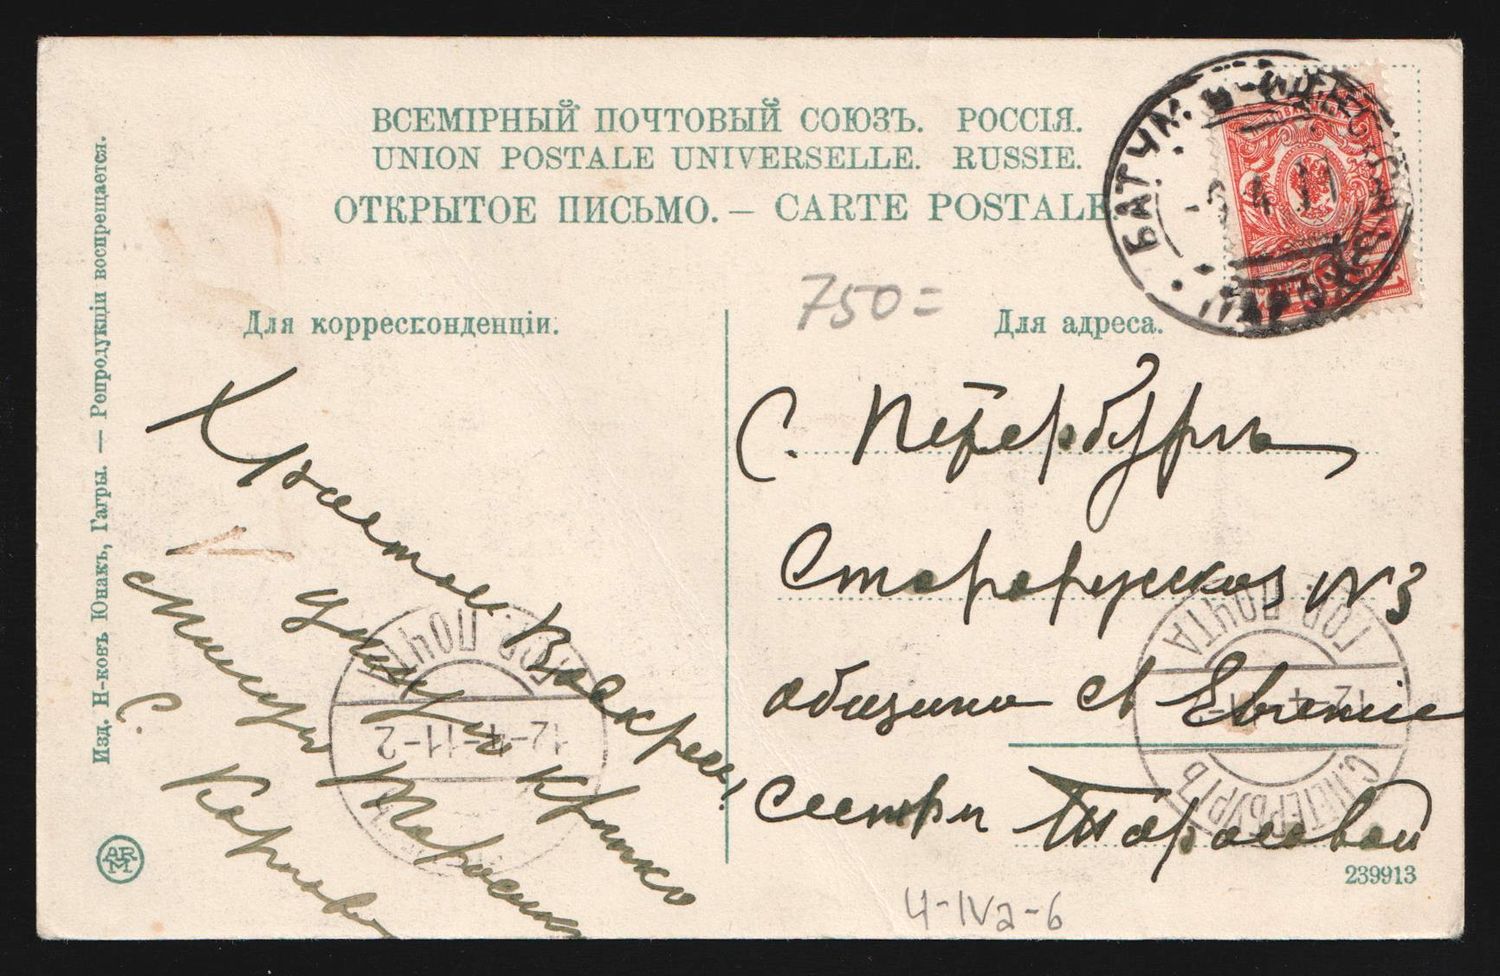 ВСЕМІРНЫЙ ПОЧТОВЫЙ СОЮЗЪ. РОССІЯ.
UNION POSTALE UNIVERSELLE. RUSSIE.
ОТКРЫТОЕ ПИСЬМО. — CARTE POSTALE
Изд. Н-ковъ Юнакъ, Гагры. — Репродукціи воспрещается.
750=
Для корреспонденціи.
Для адреса.
Христосъ Воскресъ!
крѣпко
С. Карпова
С. Петербургъ
Старорусская N 3
община св Евгеніи
сестрѣ Тарасовой
239913
4-IVa-6
БАТУМ
4 11
ГОР. ПОЧТА
12-4-11-2
ГОР. ПОЧТА
С.ПЕТЕРБУРГЪ
ARM